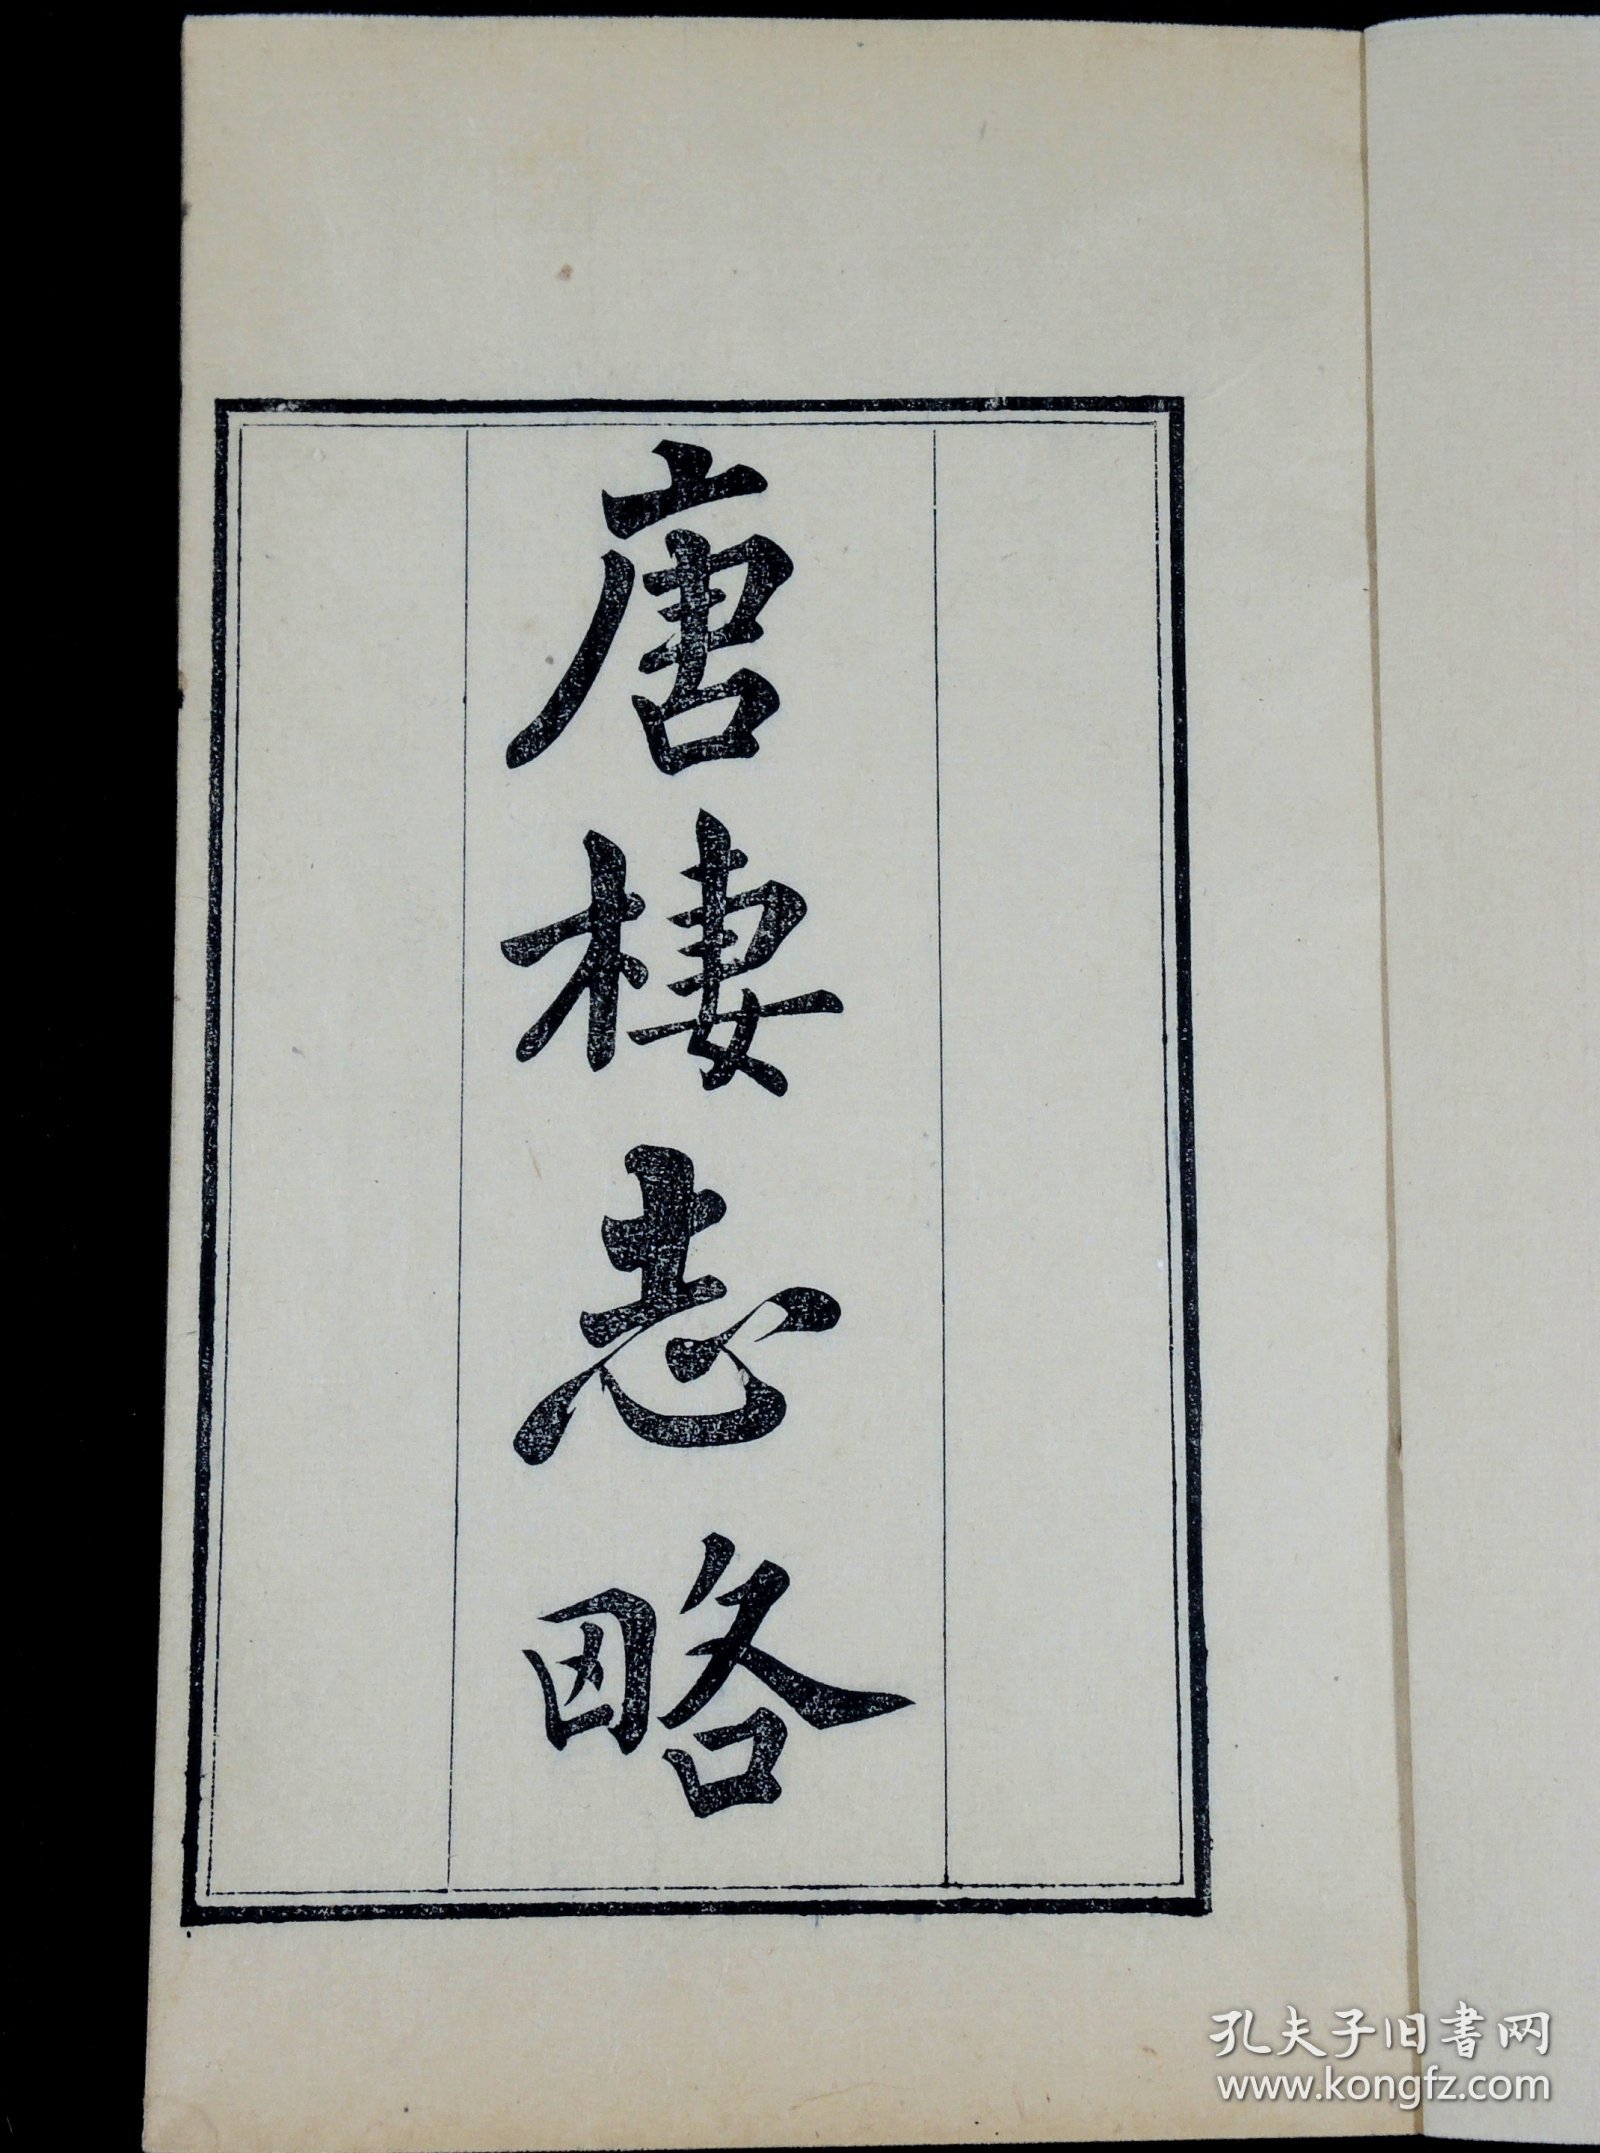 唐棲志略
孔夫子旧書网
www.kongfz.com